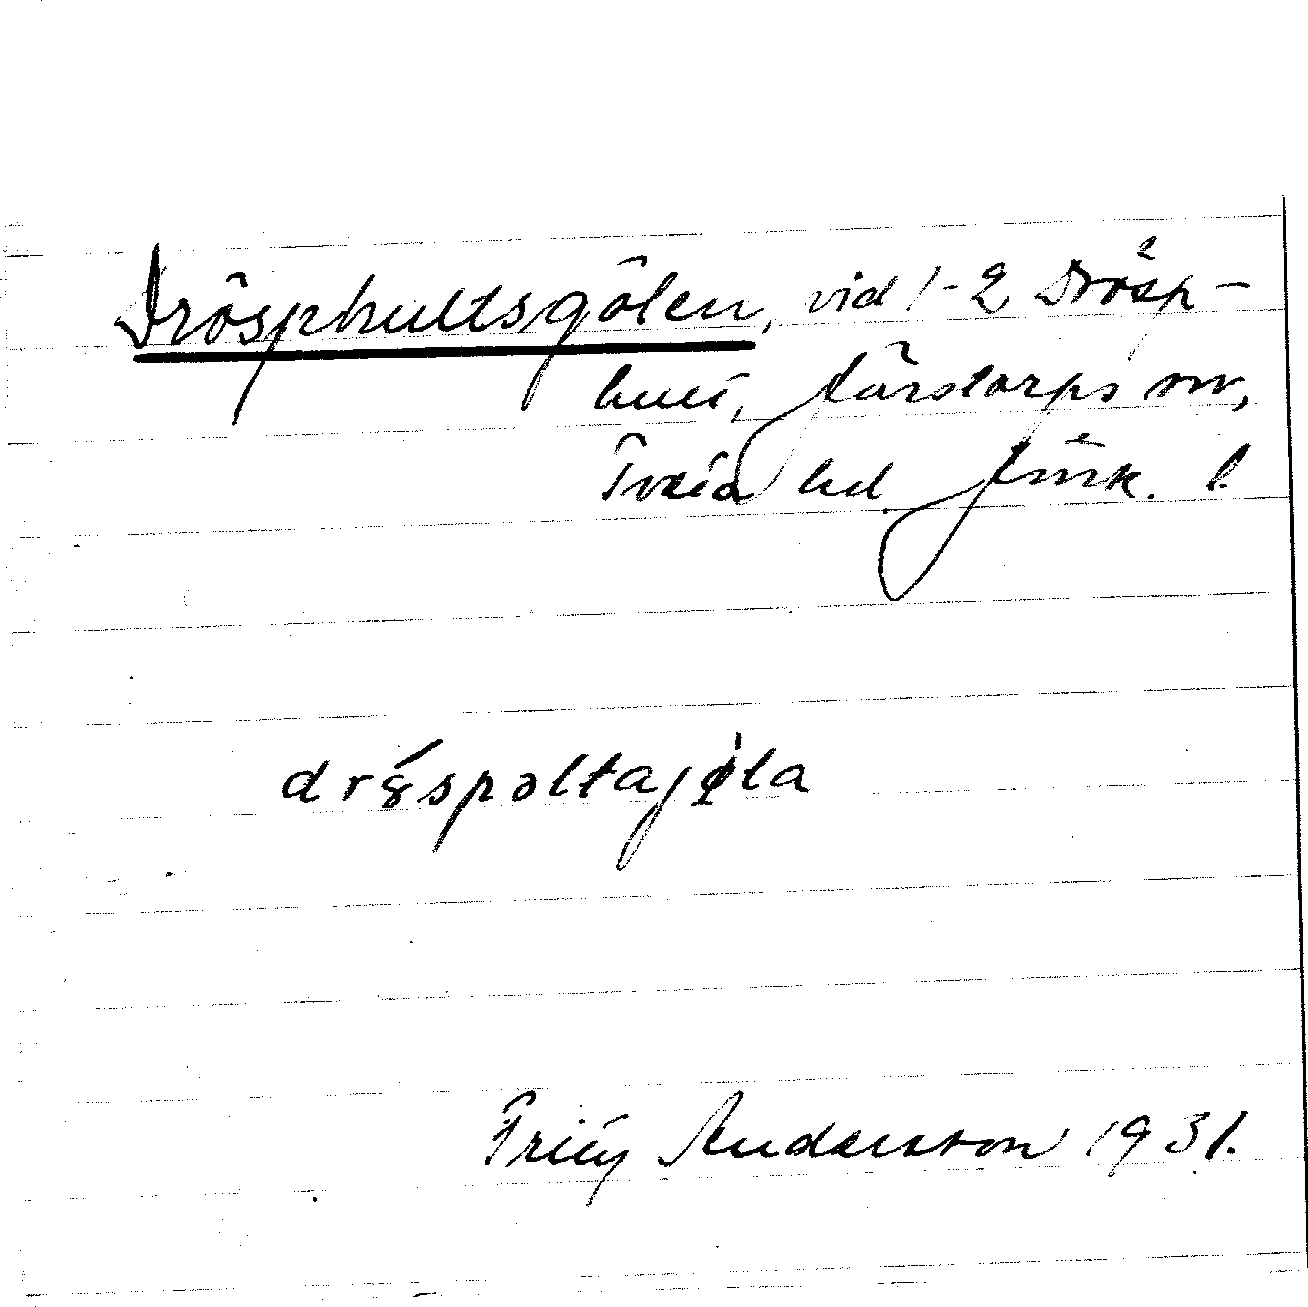 Drösphultsgölen, vid 1-2 Drösp-
hult, Järstorps sn,
Tveta hd Jönk. l.
dröspəltajøla
Fritz Andersson 1931.